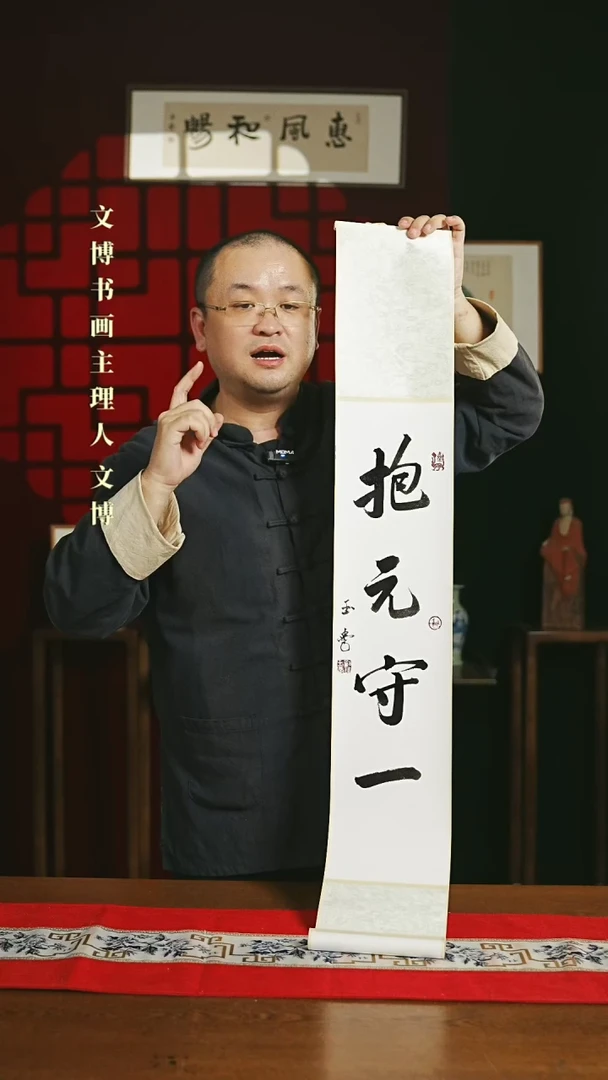 惠風和暢
文博书画主理人文博
抱元守一